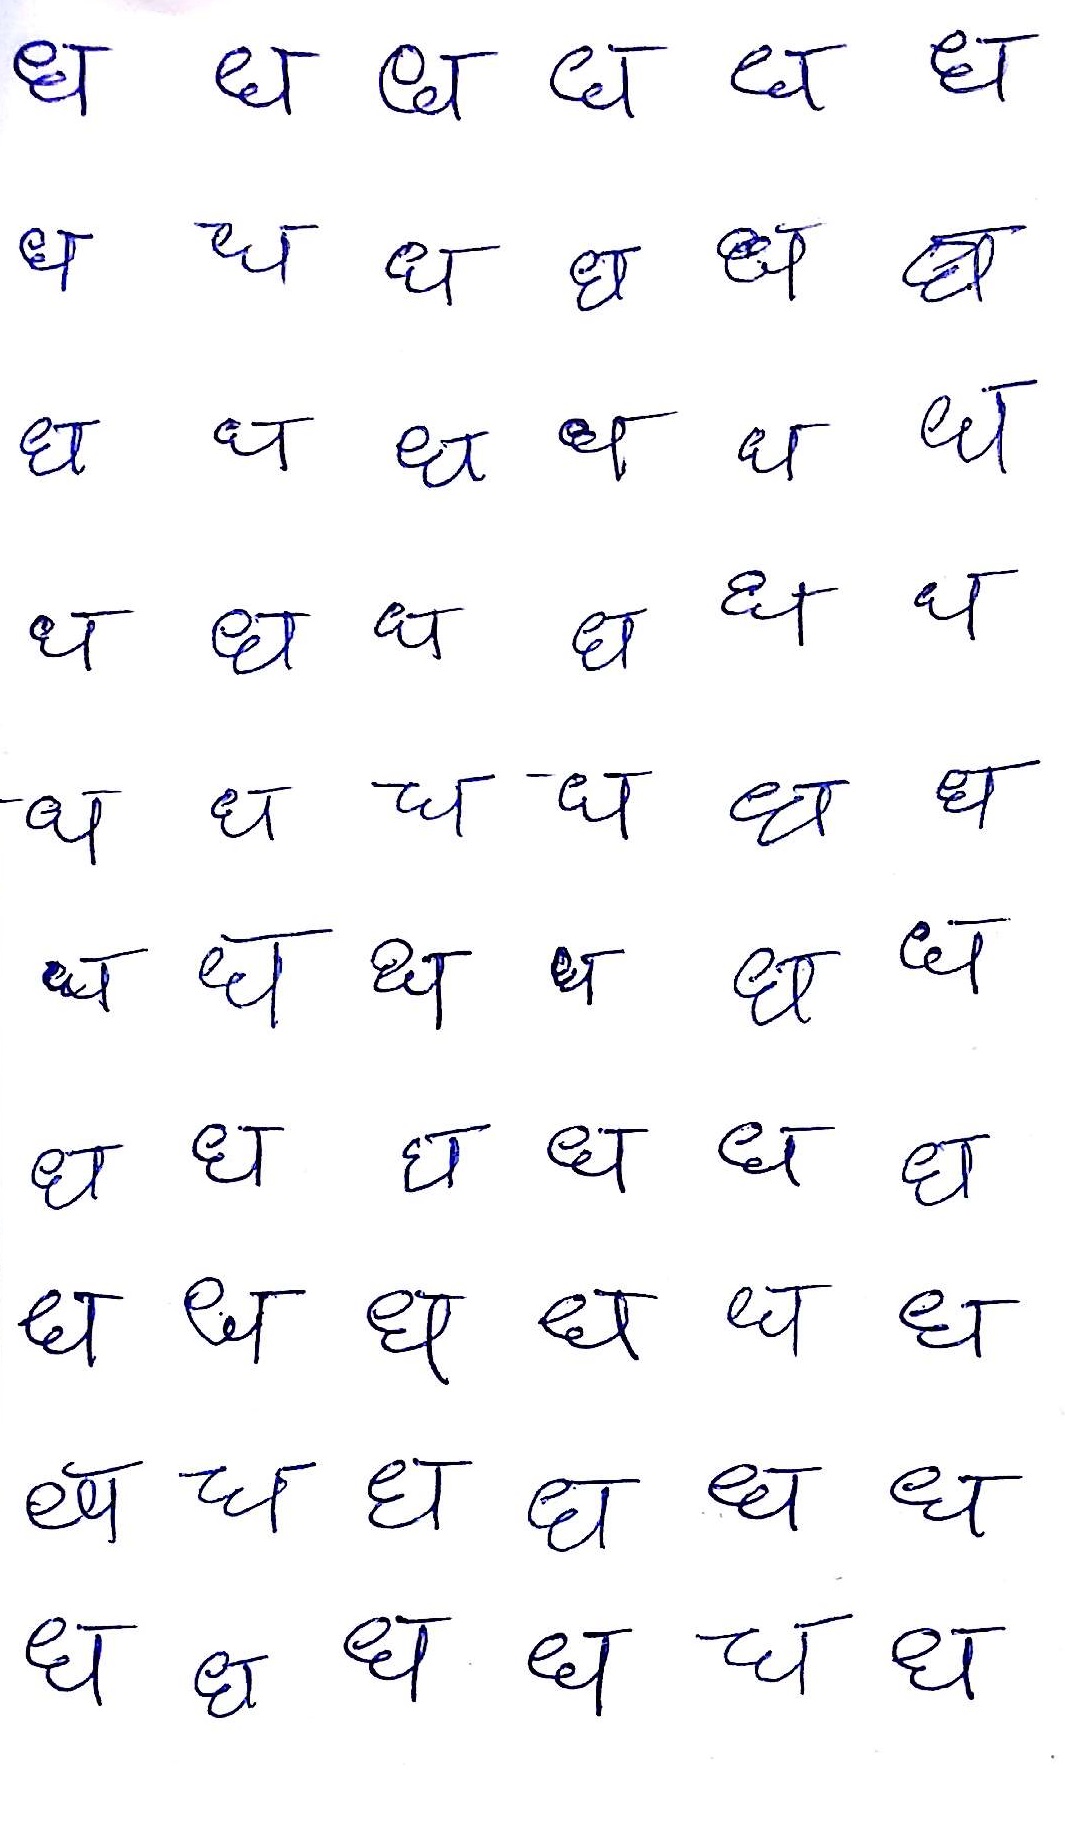 ध ध ध ध ध ध
ध ध ध ध ध ध
ध ध ध ध ध ध
ध ध ध ध ध ध
ध ध ध ध ध ध
ध ध ध ध ध ध
ध ध ध ध ध ध
ध ध ध ध ध ध
ध ध ध ध ध ध
ध ध ध ध ध ध